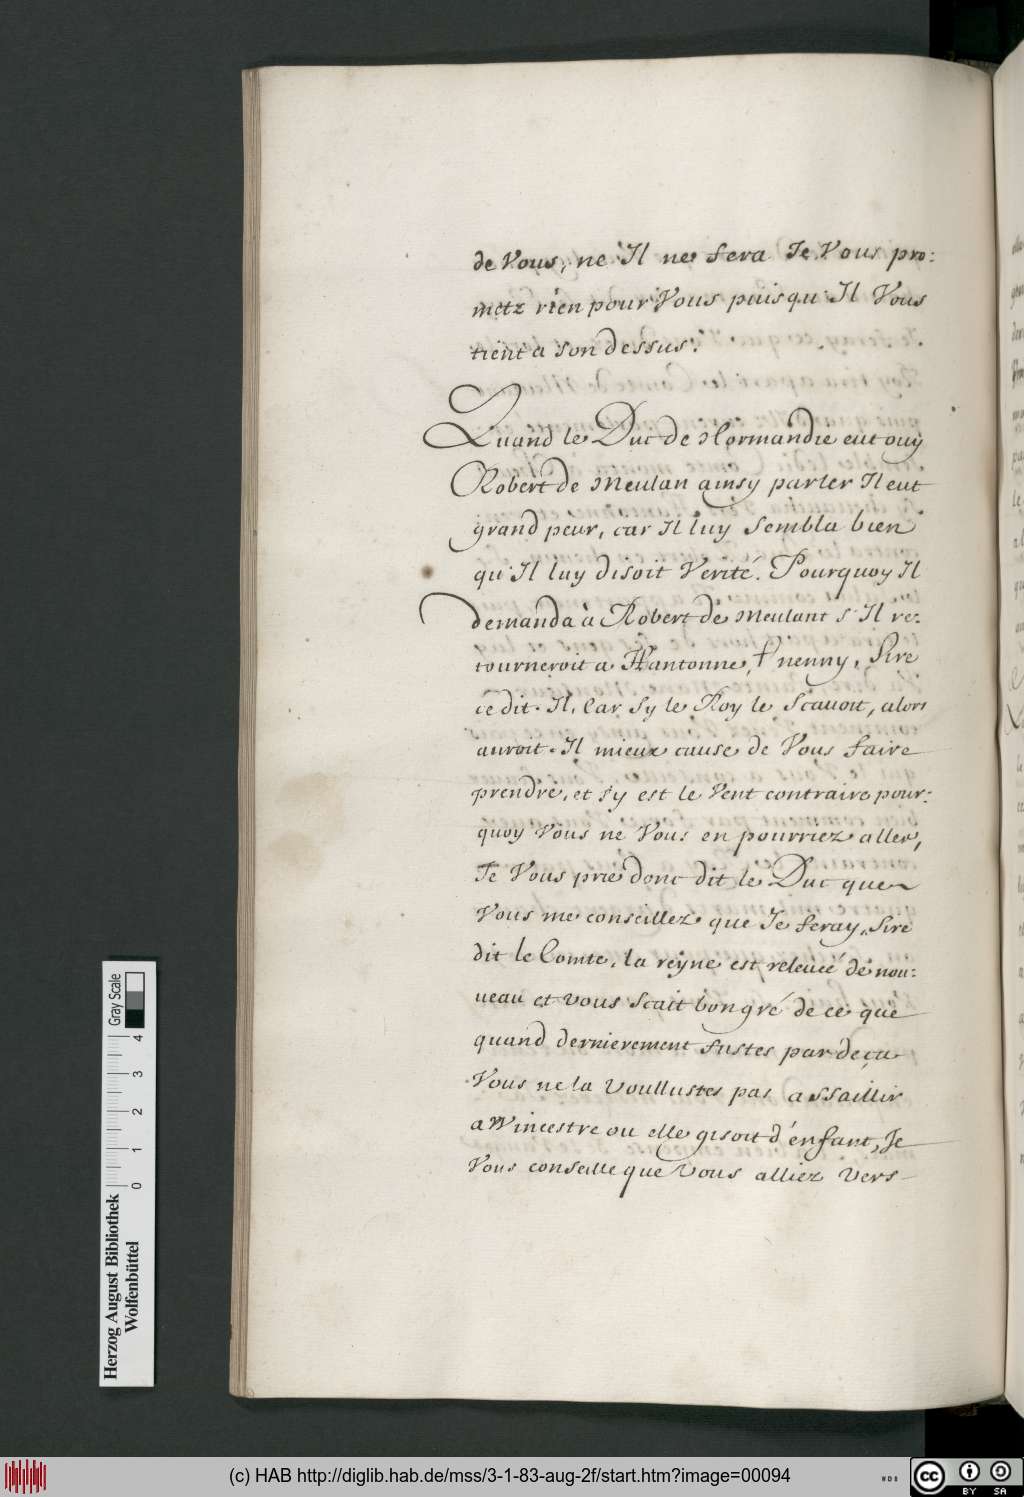 de Vous, ne Il ne fera Je Vous pro:
metz rien pour Vous puisqu'Il Vous
tient a son dessus.
Quand le Duc de Normandie eut ouy
Robert de Meulan ainsy parler Il eut
grand peur, car Il luy sembla bien
qu'Il luy disoit Verité. Pourquoy Il
demanda à Robert de Meulant s'Il re:
tourneroit a Hantonne, nenny, Sire
ce dit Il, Car sy le Roy le scavoit, alors
auroit Il mieux cause de Vous faire
prendre, et s'y est le Vent contraire pour:
quoy Vous ne Vous en pourriez aller,
Je Vous prie donc dit le Duc que
Vous me conseillez que Je feray, Sire
dit le Comte, la reyne est releuée de nou:
ueau et vous scait bon gré de ce que
quand dernierement fustes par deça
Vous ne la voullustes pas assaillir
a Wincestre ou elle gisoit d'enfant, Je
Vous conseille que Vous alliez vers
Herzog August Bibliothek
Wolfenbüttel
0 1 2 3 4
Gray Scale
(c) HAB http://diglib.hab.de/mss/3-1-83-aug-2f/start.htm?image=00094
WDB
cc BY SA